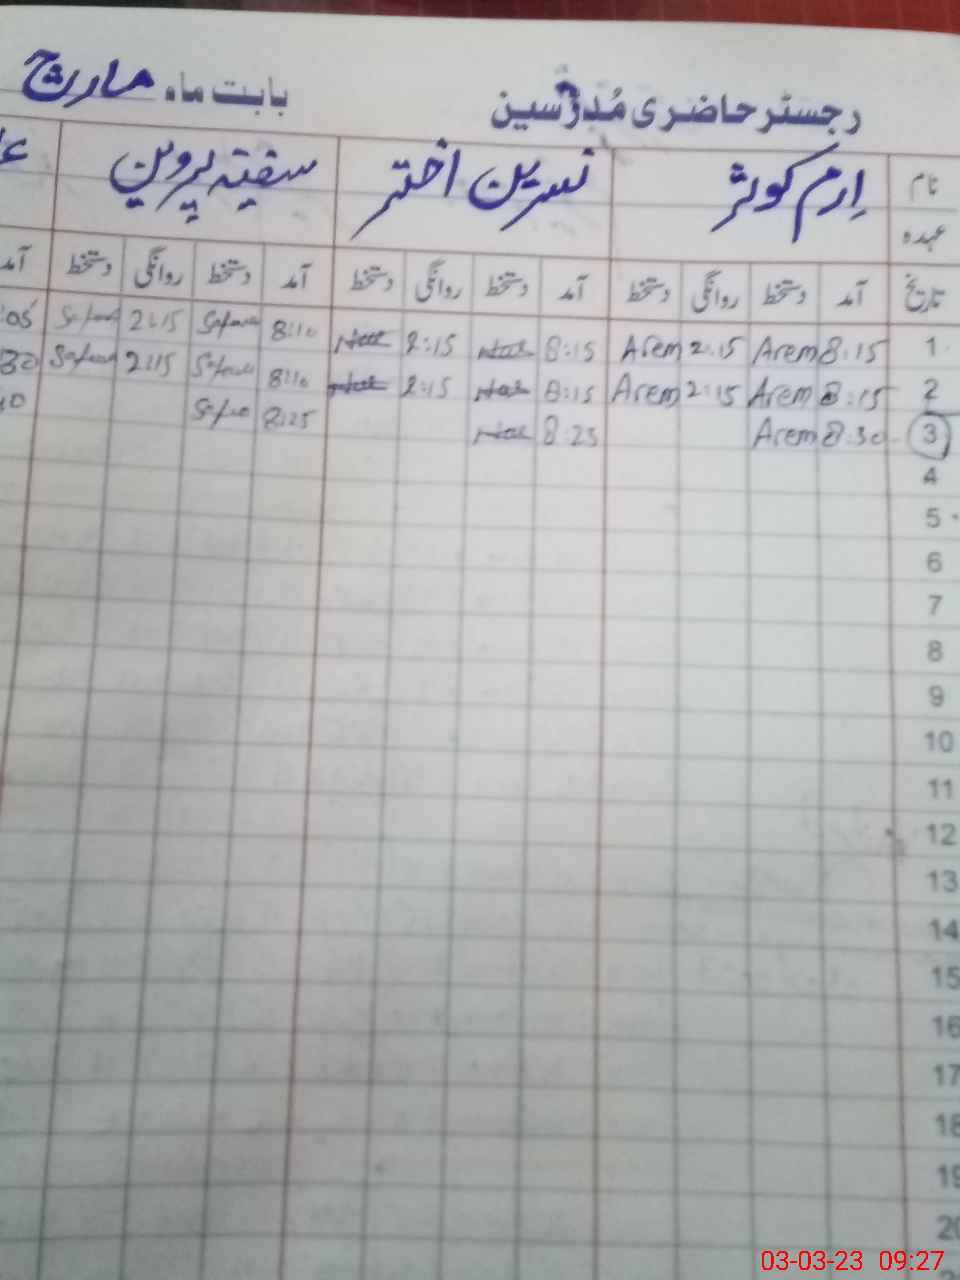 رجسٹر حاضری مُدرّسین بابت ماہ مارچ
نام ارم کوثر نسرین اختر سفینہ پروین
عہدہ
تاریخ آمد دستخط روانگی دستخط آمد دستخط روانگی دستخط آمد دستخط روانگی دستخط آمد
1 8:15 Arem 2:15 Arem 8:15 2:15 8:10 2:15 :05
2 8:15 Arem 2:15 Arem 8:15 2:15 8:10 2:15 :30
3 8:30 Arem 8:25 8:25
4
5
6
7
8
9
10
11
12
13
14
15
16
17
18
19
20
03-03-23 09:27